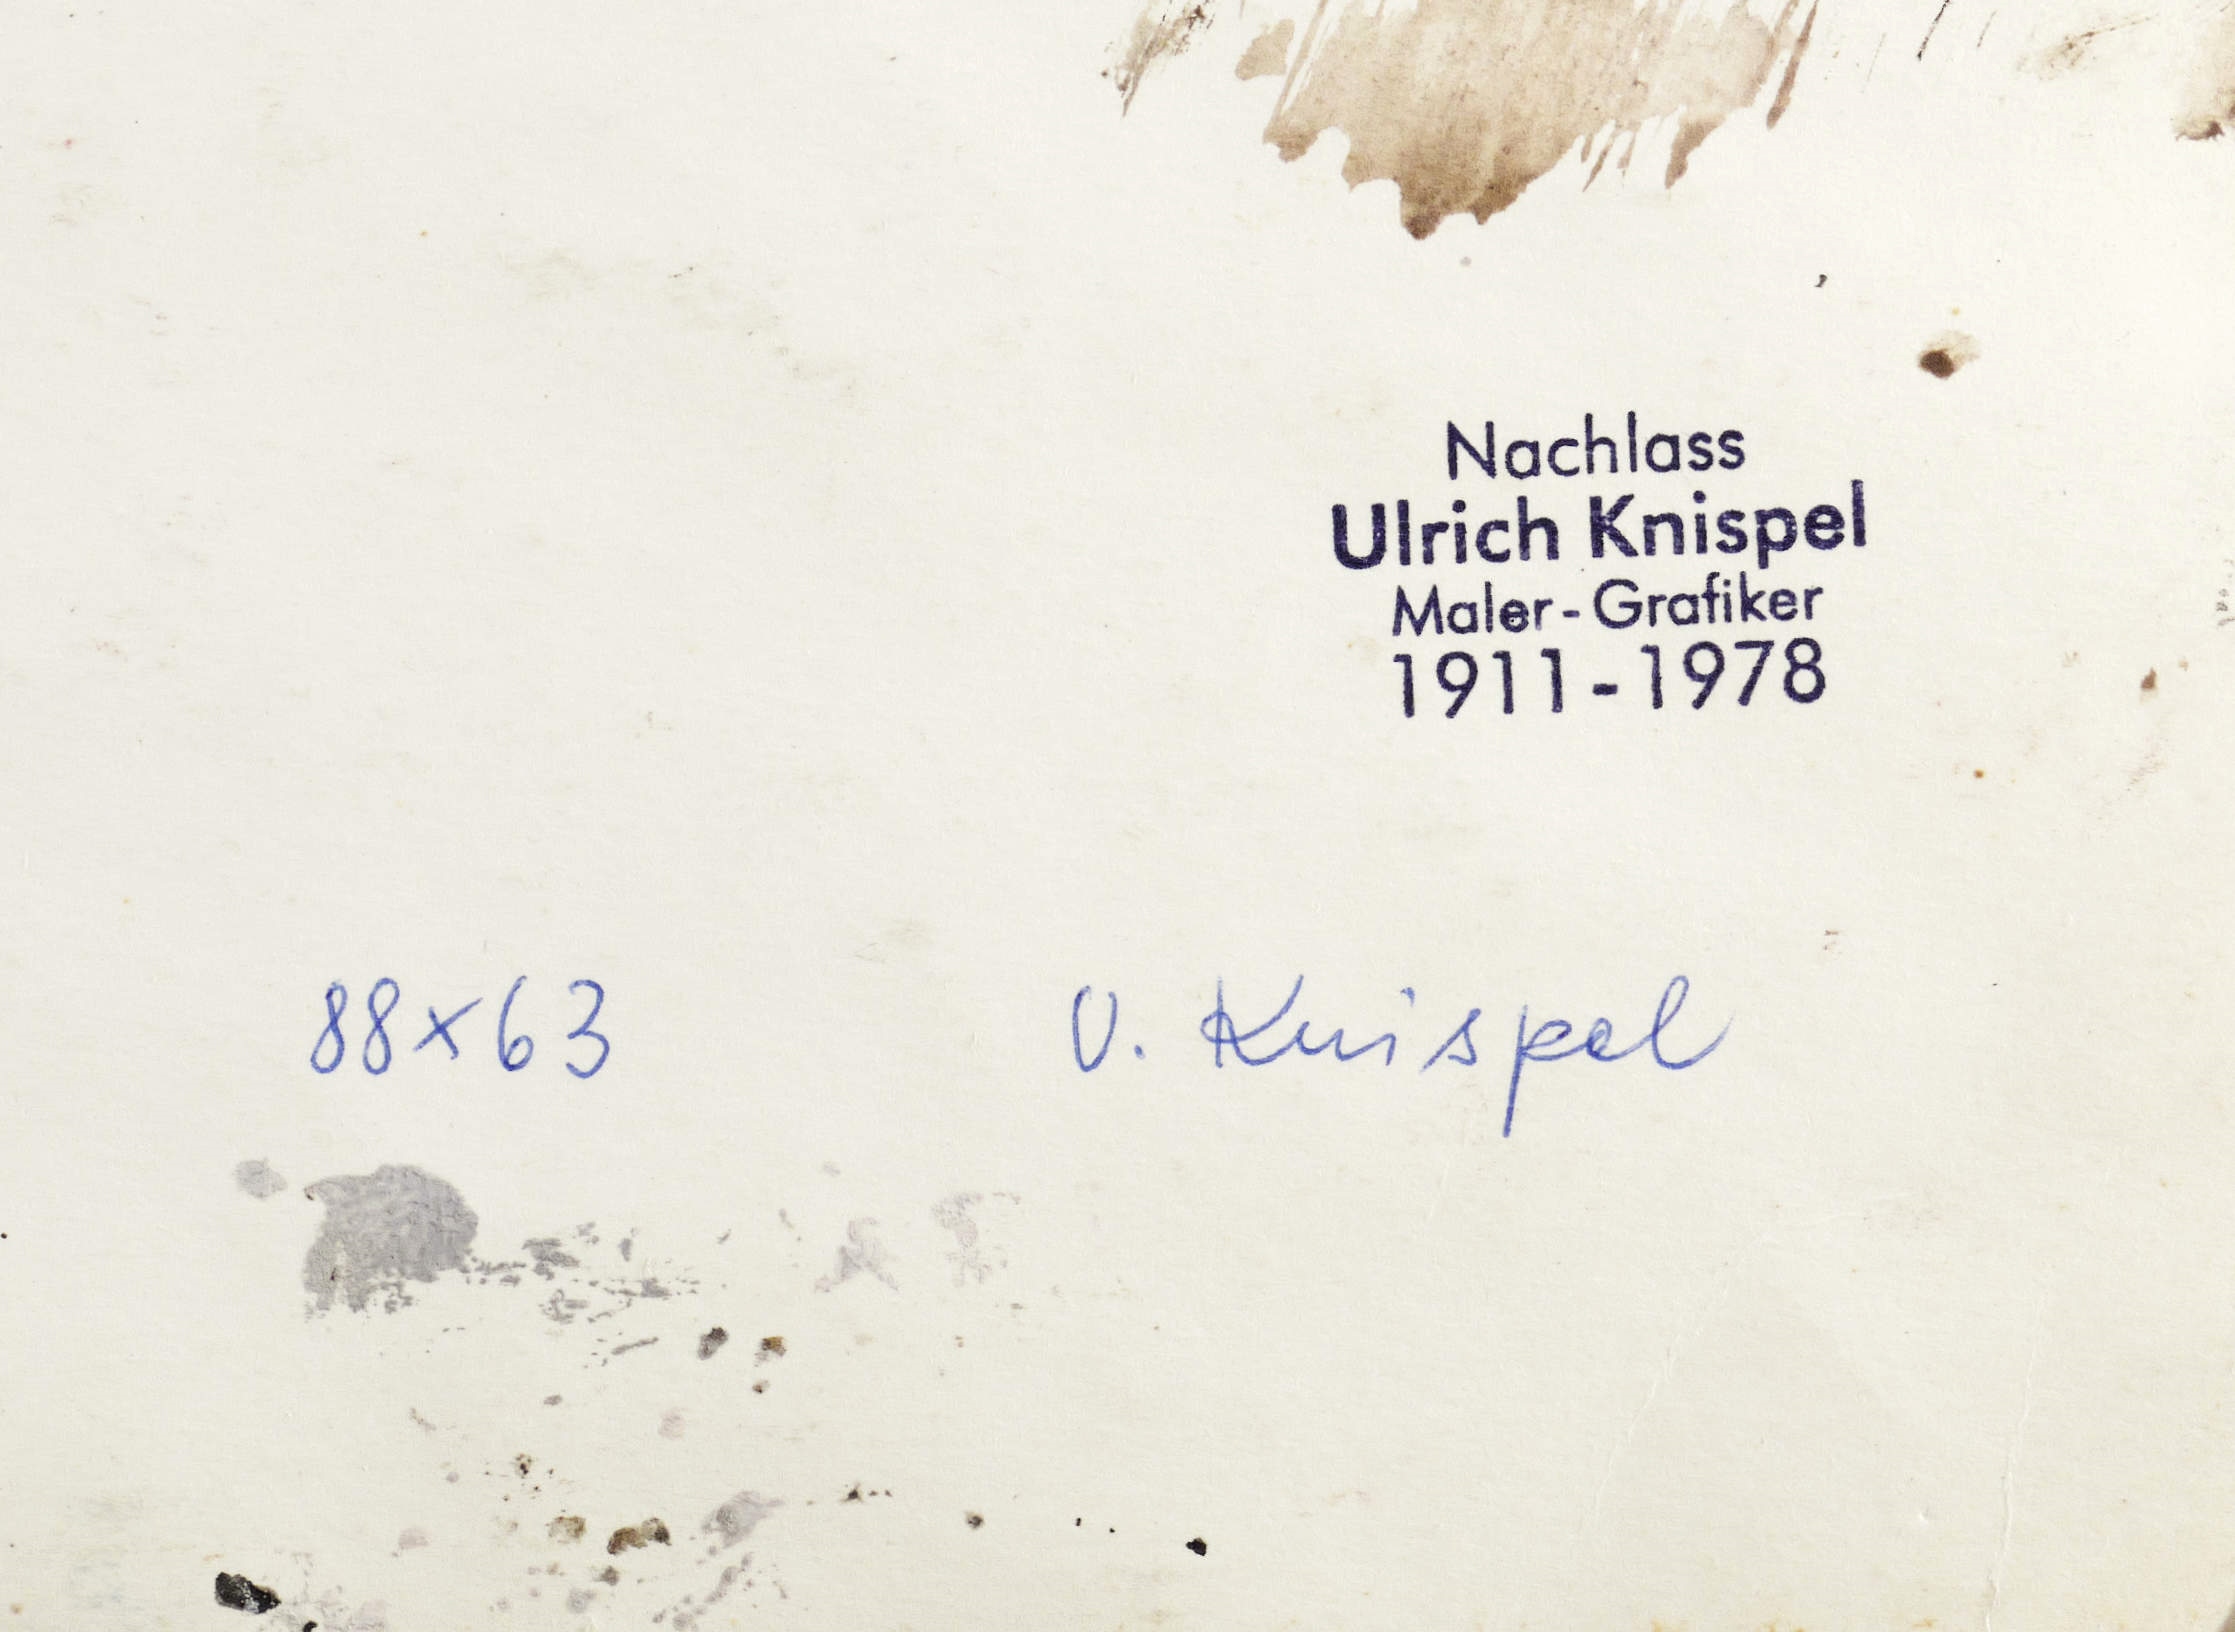 Nachlass
Ulrich Knispel
Maler-Grafiker
1911-1978
88x63 U. Knispel